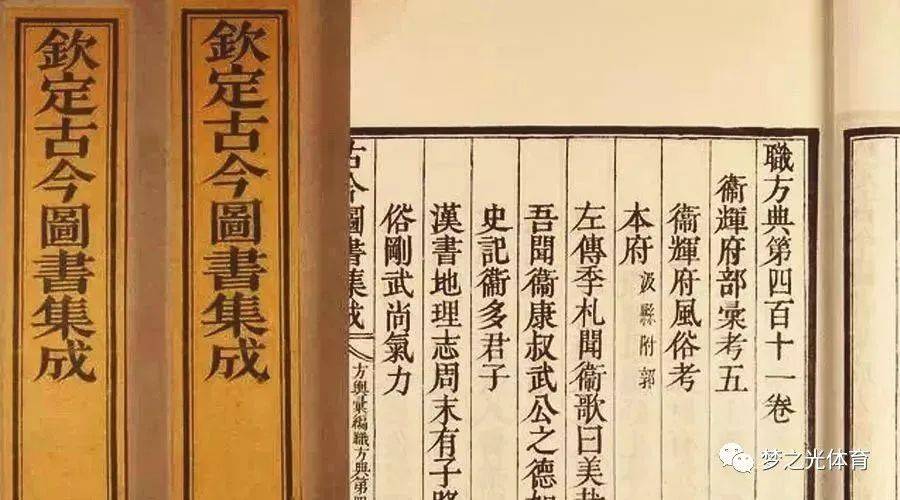 欽定古今圖書集成
欽定古今圖書集成
職方典第四百十一卷
衞輝府部彙考五
衞輝府風俗考
本府 汲縣附郭
左傳季札聞衞歌曰美哉
吾聞衞康叔武公之德如
史記衞多君子
漢書地理志周末有子路
俗剛武尚氣力
古今圖書集成
方輿彙編職方典第四
梦之光体育